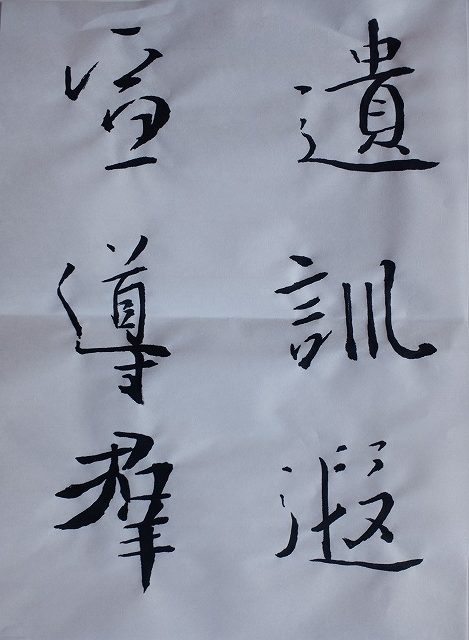 遺訓遐
宣導羣